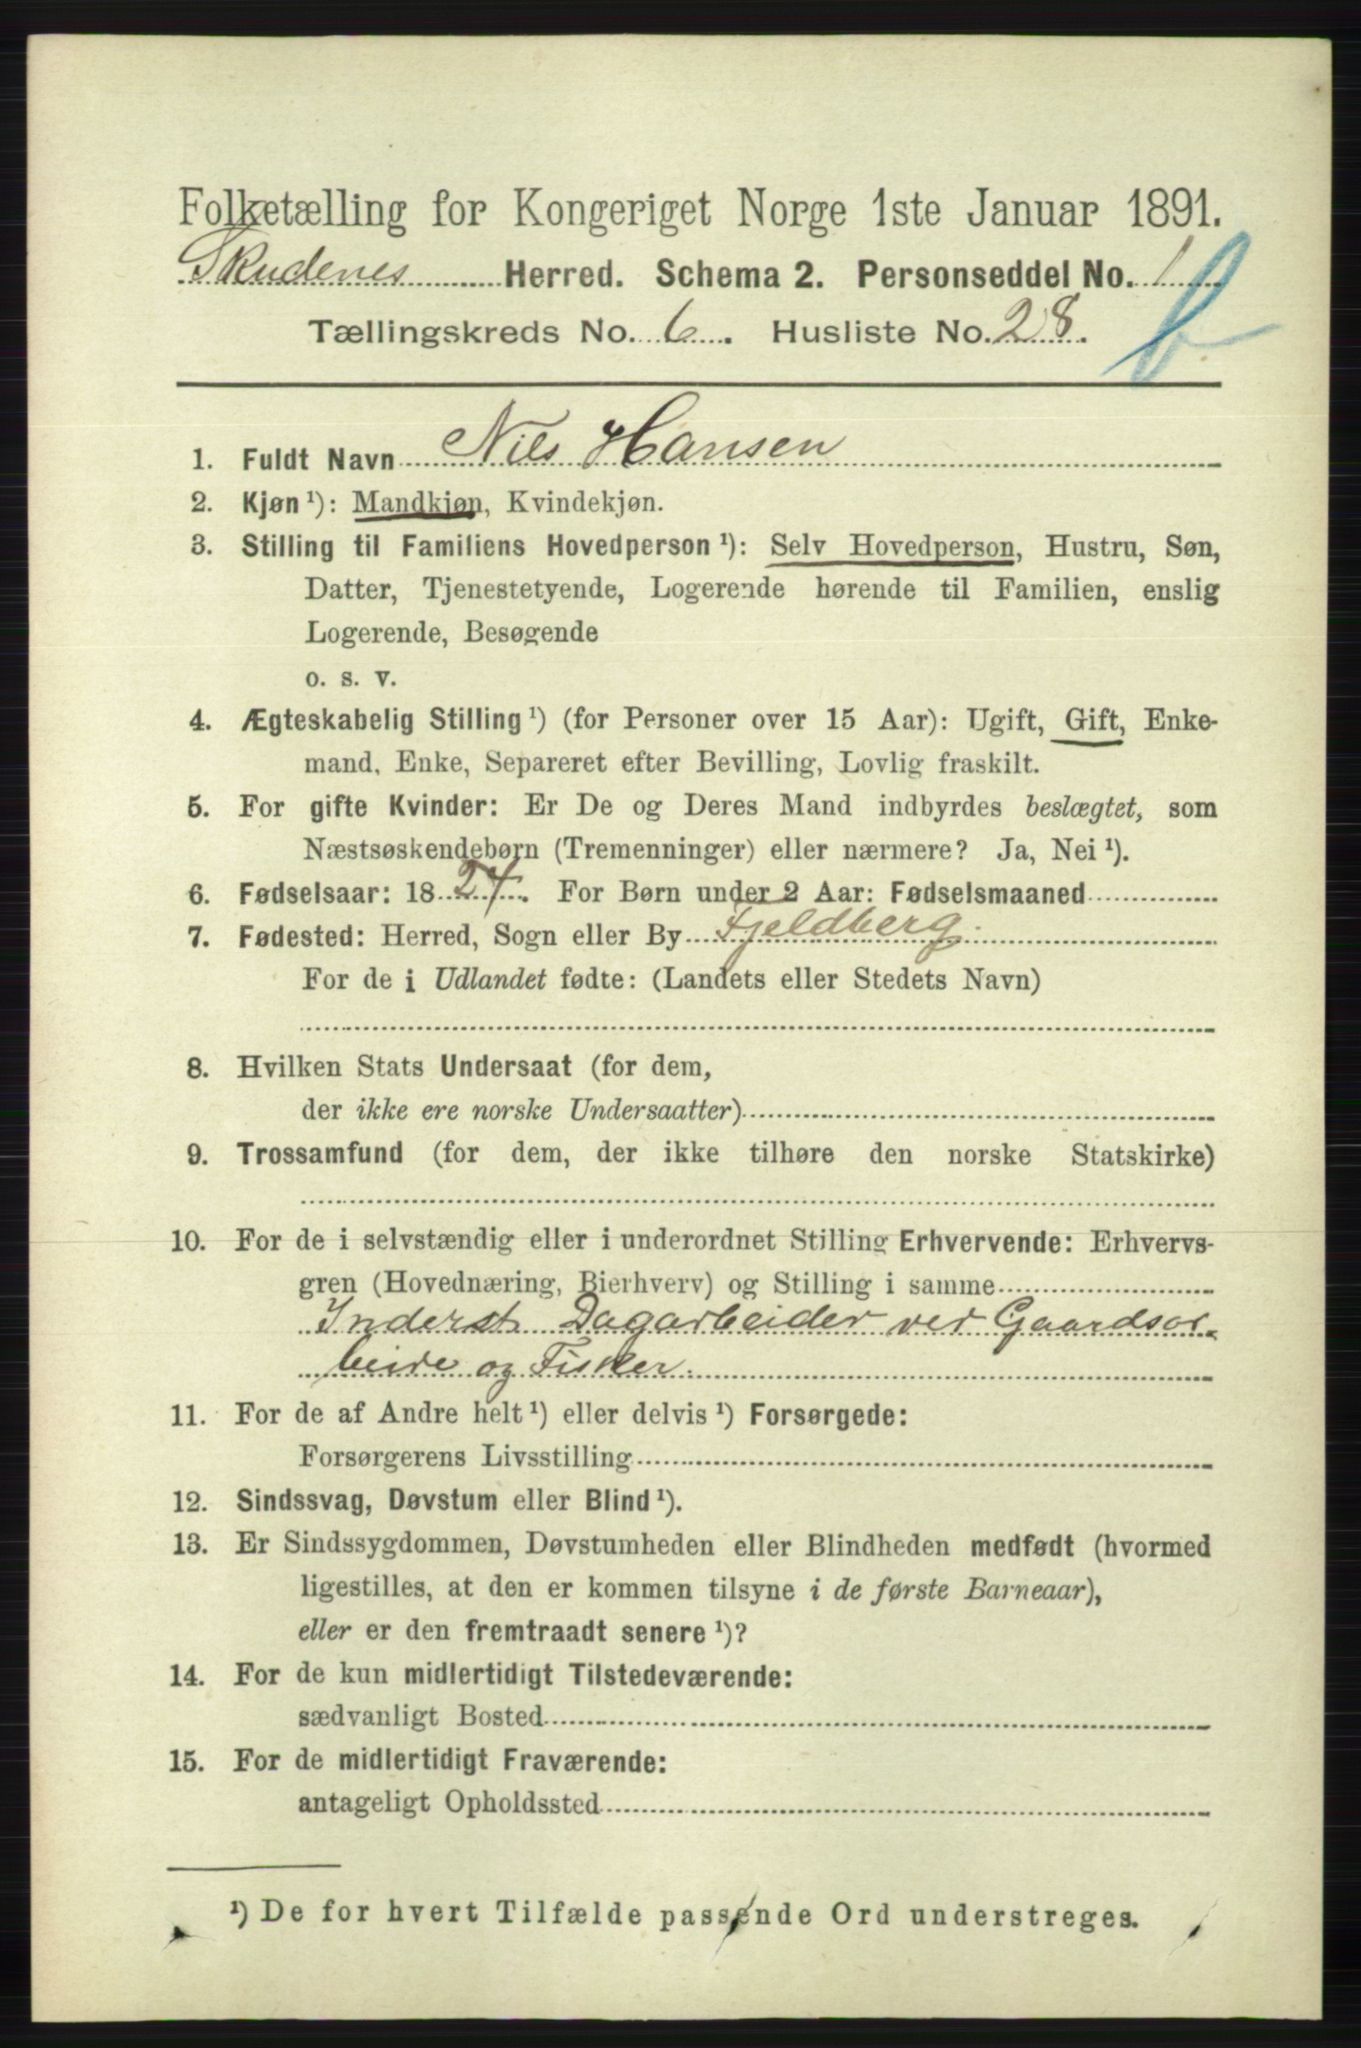 Folketælling for Kongeriget Norge 1ste Januar 1891.
Skudenes Herred. Schema 2. Personseddel No. 1
Tællingskreds No. 6. Husliste No. 28.
b
1. Fuldt Navn Nils Hansen
2. Kjøn ¹): Mandkjøn, Kvindekjøn.
3. Stilling til Familiens Hovedperson ¹): Selv Hovedperson, Hustru, Søn,
Datter, Tjenestetyende, Logerende hørende til Familien, enslig
Logerende, Besøgende
o. s. v.
4. Ægteskabelig Stilling ¹) (for Personer over 15 Aar): Ugift, Gift, Enke-
mand, Enke, Separeret efter Bevilling, Lovlig fraskilt.
5. For gifte Kvinder: Er De og Deres Mand indbyrdes beslægtet, som
Næstsøskendebørn (Tremenninger) eller nærmere? Ja, Nei ¹).
6. Fødselsaar: 1824. For Børn under 2 Aar: Fødselsmaaned
7. Fødested: Herred, Sogn eller By Fjeldberg
For de i Udlandet fødte: (Landets eller Stedets Navn)
8. Hvilken Stats Undersaat (for dem,
der ikke ere norske Undersaatter)
9. Trossamfund (for dem, der ikke tilhøre den norske Statskirke)
10. For de i selvstændig eller i underordnet Stilling Erhvervende: Erhvervs-
gren (Hovednæring, Bierhverv) og Stilling i samme
Inderst Dagarbeider ved Gaardsar-
beide og Fisker.
11. For de af Andre helt ¹) eller delvis ¹) Forsørgede:
Forsørgerens Livsstilling
12. Sindssvag, Døvstum eller Blind ¹).
13. Er Sindssygdommen, Døvstumheden eller Blindheden medfødt (hvormed
ligestilles, at den er kommen tilsyne i de første Barneaar),
eller er den fremtraadt senere ¹)?
14. For de kun midlertidigt Tilstedeværende:
sædvanligt Bosted
15. For de midlertidigt Fraværende:
antageligt Opholdssted
¹) De for hvert Tilfælde passende Ord understreges.